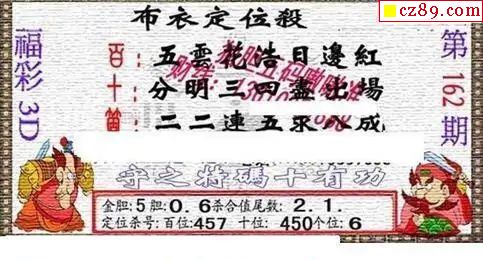 cz89.com
布衣定位殺
福彩3D
第162期
百:五雲花浩日邊紅
十:分明三四盡出場
箇:二二連五來八成
守之特碼十有功
金胆:5胆:0.6杀合值尾数:2.1.
定位杀号:百位:457 十位:450个位:6